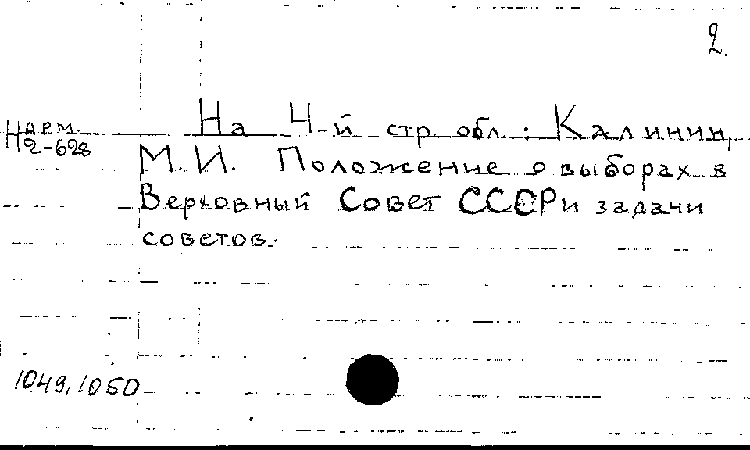 2.
На 4-й стр. обл.: Калинин,
Нарм.
2-628
М. И. Положение о выборах в
Верховный Совет СССР и задачи
советов.
1049, 1050